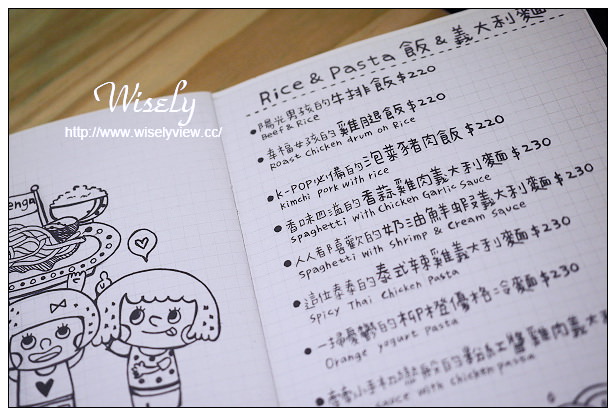 Rice & Pasta 飯 & 義大利麵
陽光男孩的牛排飯 $220
Beef & Rice
幸福女孩的雞腿飯 $220
Roast Chicken drum on Rice
K-POP必備的泡菜豬肉飯 $220
Kimchi pork with rice
香味四溢的香蒜雞肉義大利麵 $230
Spaghetti with Chicken Garlic Sauce
人人都喜歡的奶油鮮蝦義大利麵 $230
Spaghetti with Shrimp & Cream Sauce
這位泰泰的泰式辣雞義大利麵 $230
Spicy Thai Chicken Pasta
一掃憂鬱的柳橙優格冷麵 $230
Orange yogurt Pasta
的粉紅醬雞肉義大
sauce with chicken pasta
enga
Wisely
http://www.wiselyview.cc/